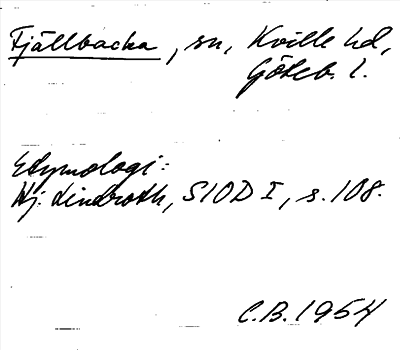 Fjällbacka, sn, Kville hd,
Göteb. l.
Etymologi:
Hj. Lindroth, SIOD I, s. 108.
C.B. 1954